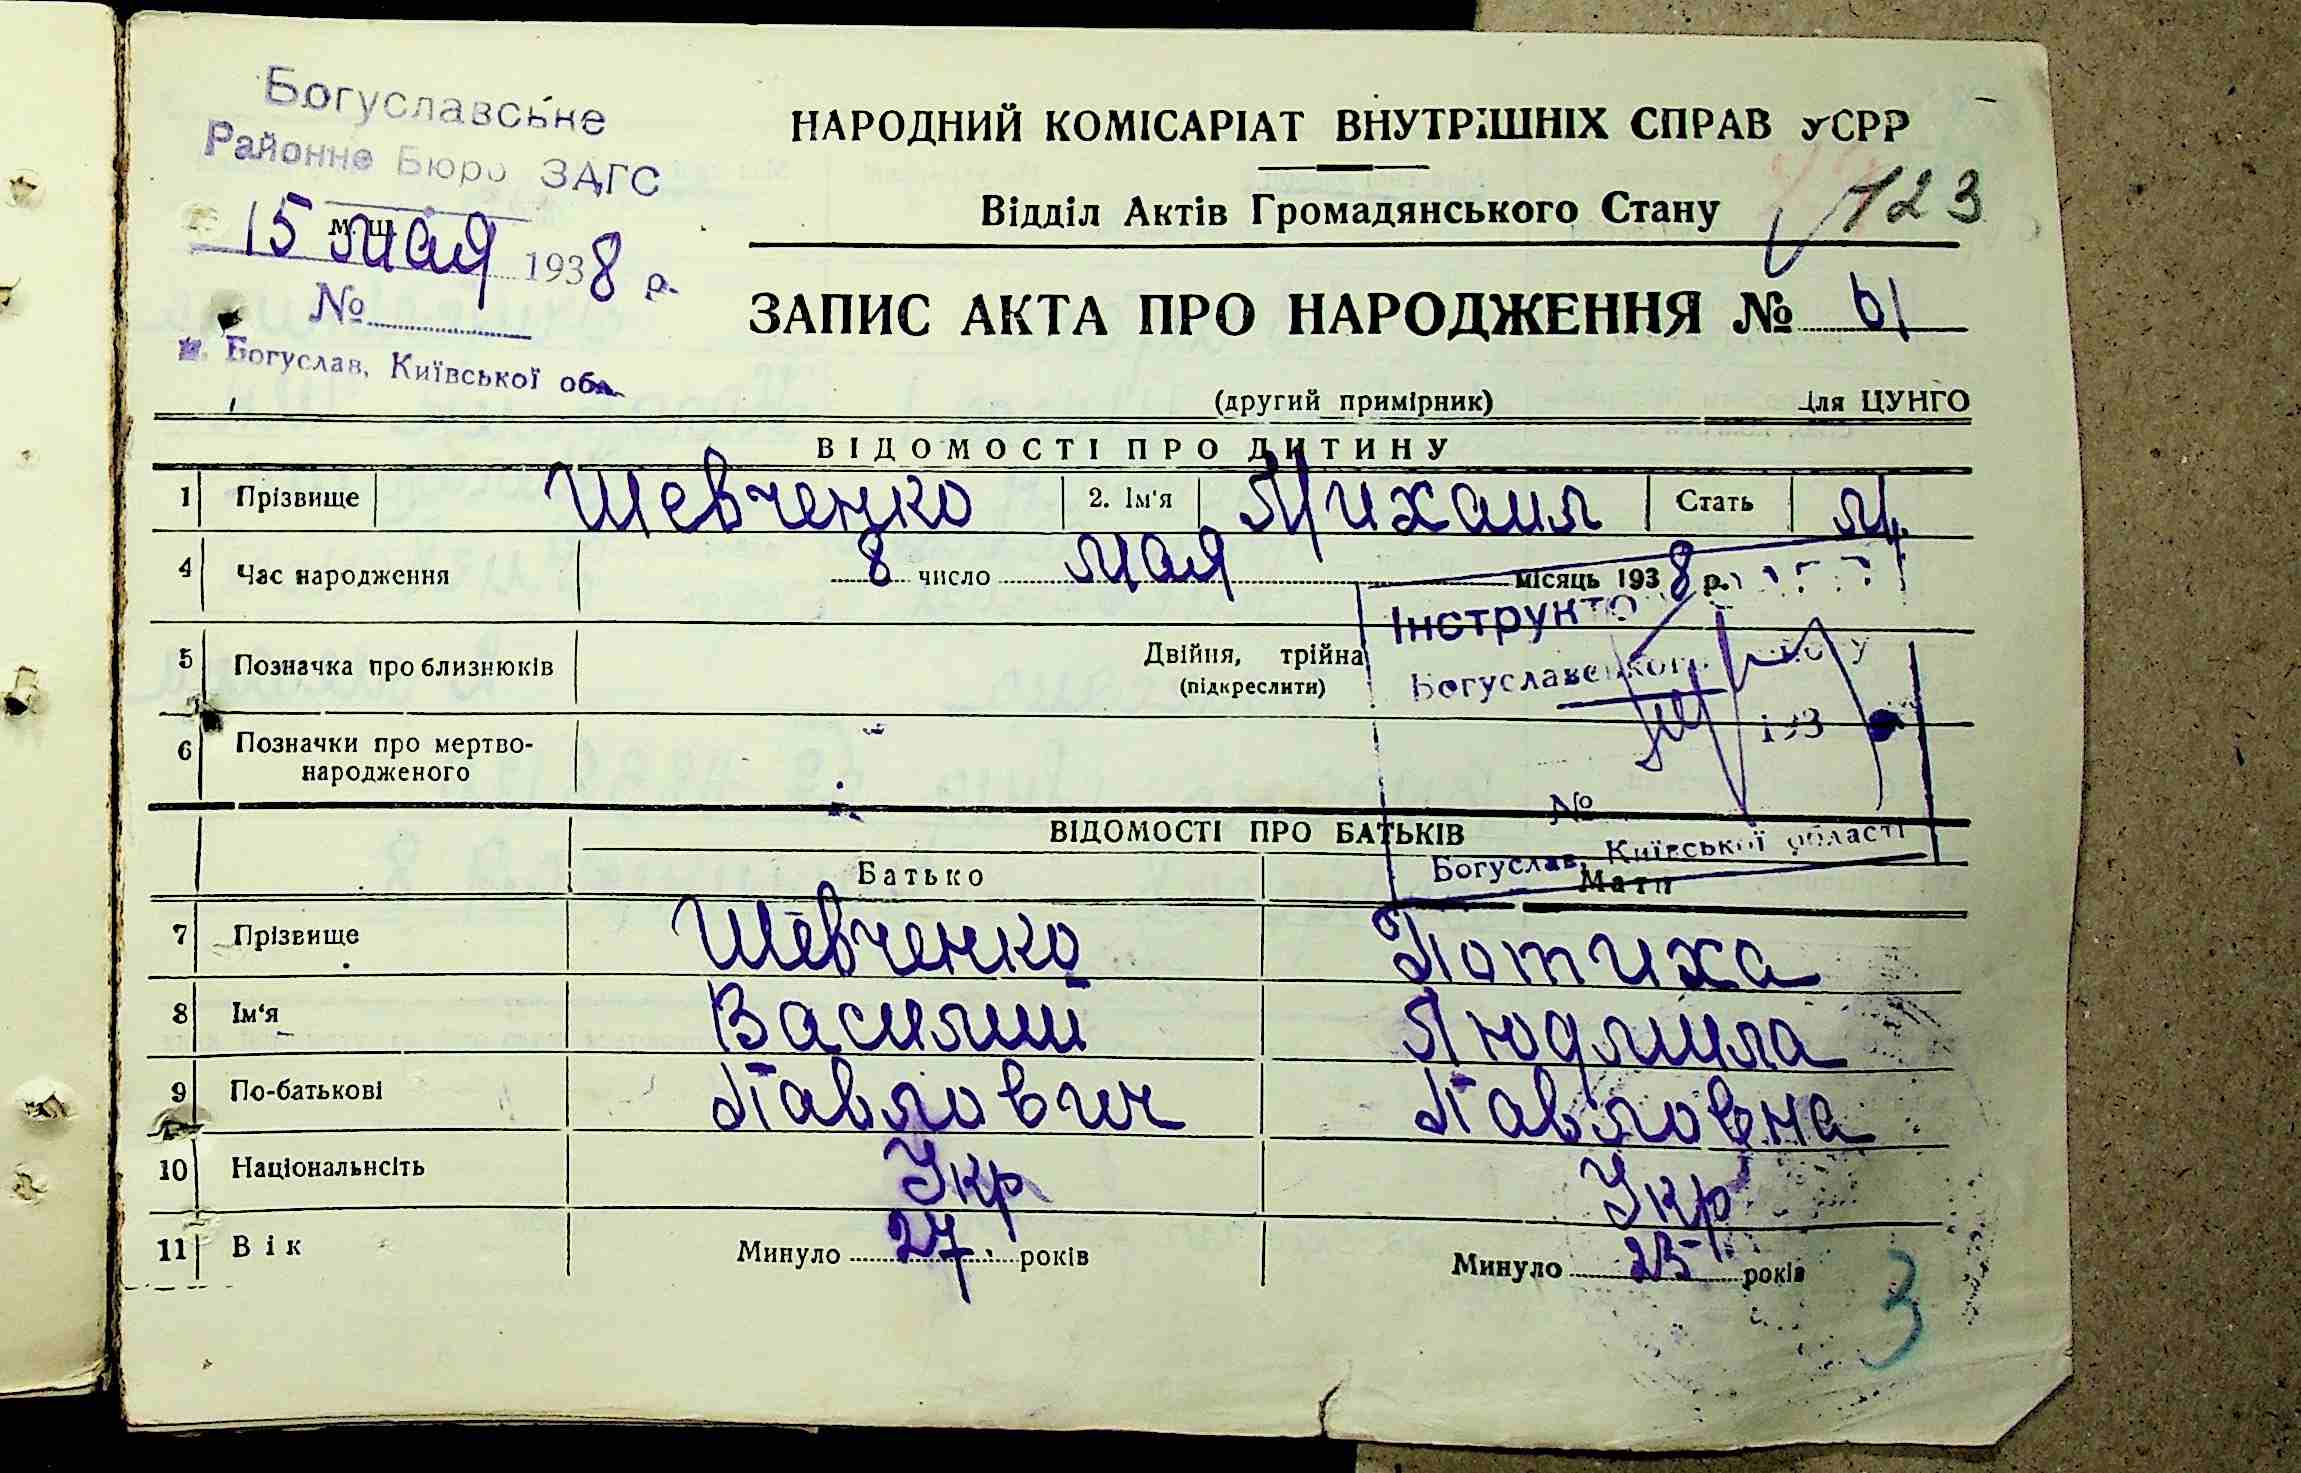 Богуславське
Районне Бюро ЗАГС
м. ш.
15 мая 1938 р.
№
м. Богуслав, Київської обл.
НАРОДНИЙ КОМІСАРІАТ ВНУТРІШНІХ СПРАВ УСРР
Відділ Актів Громадянського Стану
123
ЗАПИС АКТА ПРО НАРОДЖЕННЯ № 61
(другий примірник) Для ЦУНГО
ВІДОМОСТІ ПРО ДИТИНУ
1 Прізвище Шевченко 2. Ім'я Михаил Стать М.
4 Час народження 8 число мая місяць 1938 р.
5 Позначка про близнюків Двійня, трійна
(підкреслити)
6 Позначки про мертво-
народженого
Інструктор
Богуславського
193
№
Богуслав, Київської області
ВІДОМОСТІ ПРО БАТЬКІВ
Батько Мати
7 Прізвище Шевченко Потиха
8 Ім'я Василий Людмила
9 По-батькові Павлович Павловна
10 Національнсіть Укр Укр
11 Вік Минуло 27 років Минуло 23 років
3